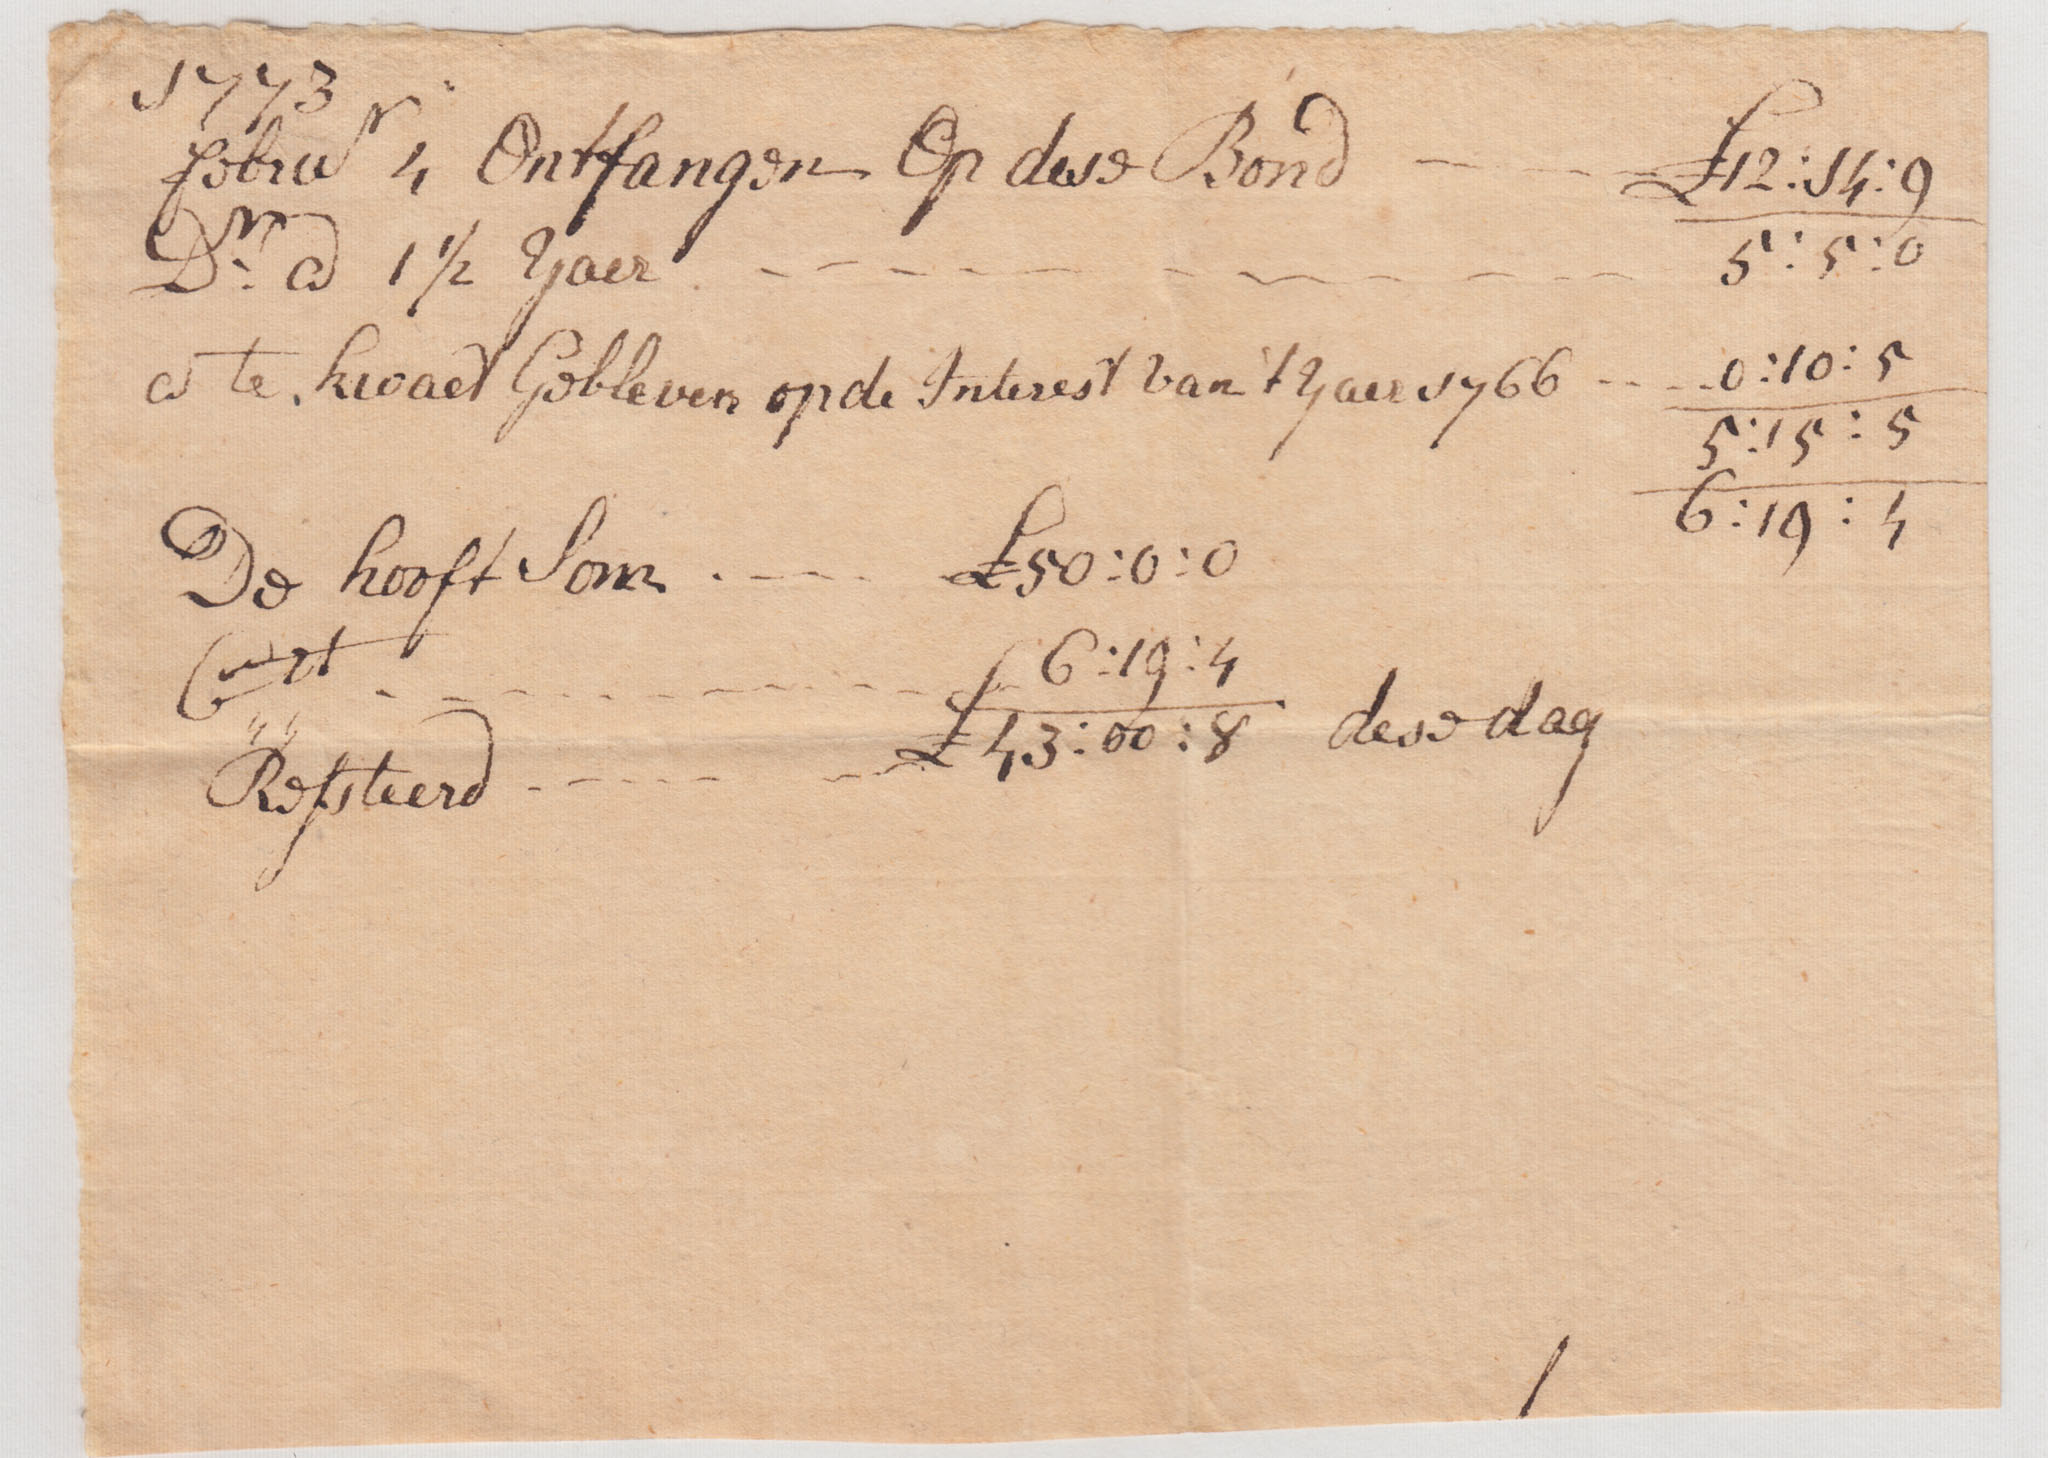 1773
febru^r 4 Ontfangen Op dese Bond £12:14:9
D^r: a 1 1/2 Yaer 5:5:0
a te kwaet Gebleven op de Interest van 't Yaer 1766 0:10:5
5:15:5
6:19:4
De hooft Som £50:0:0
6:19:4
Resteerd £43:00:8 dese dag